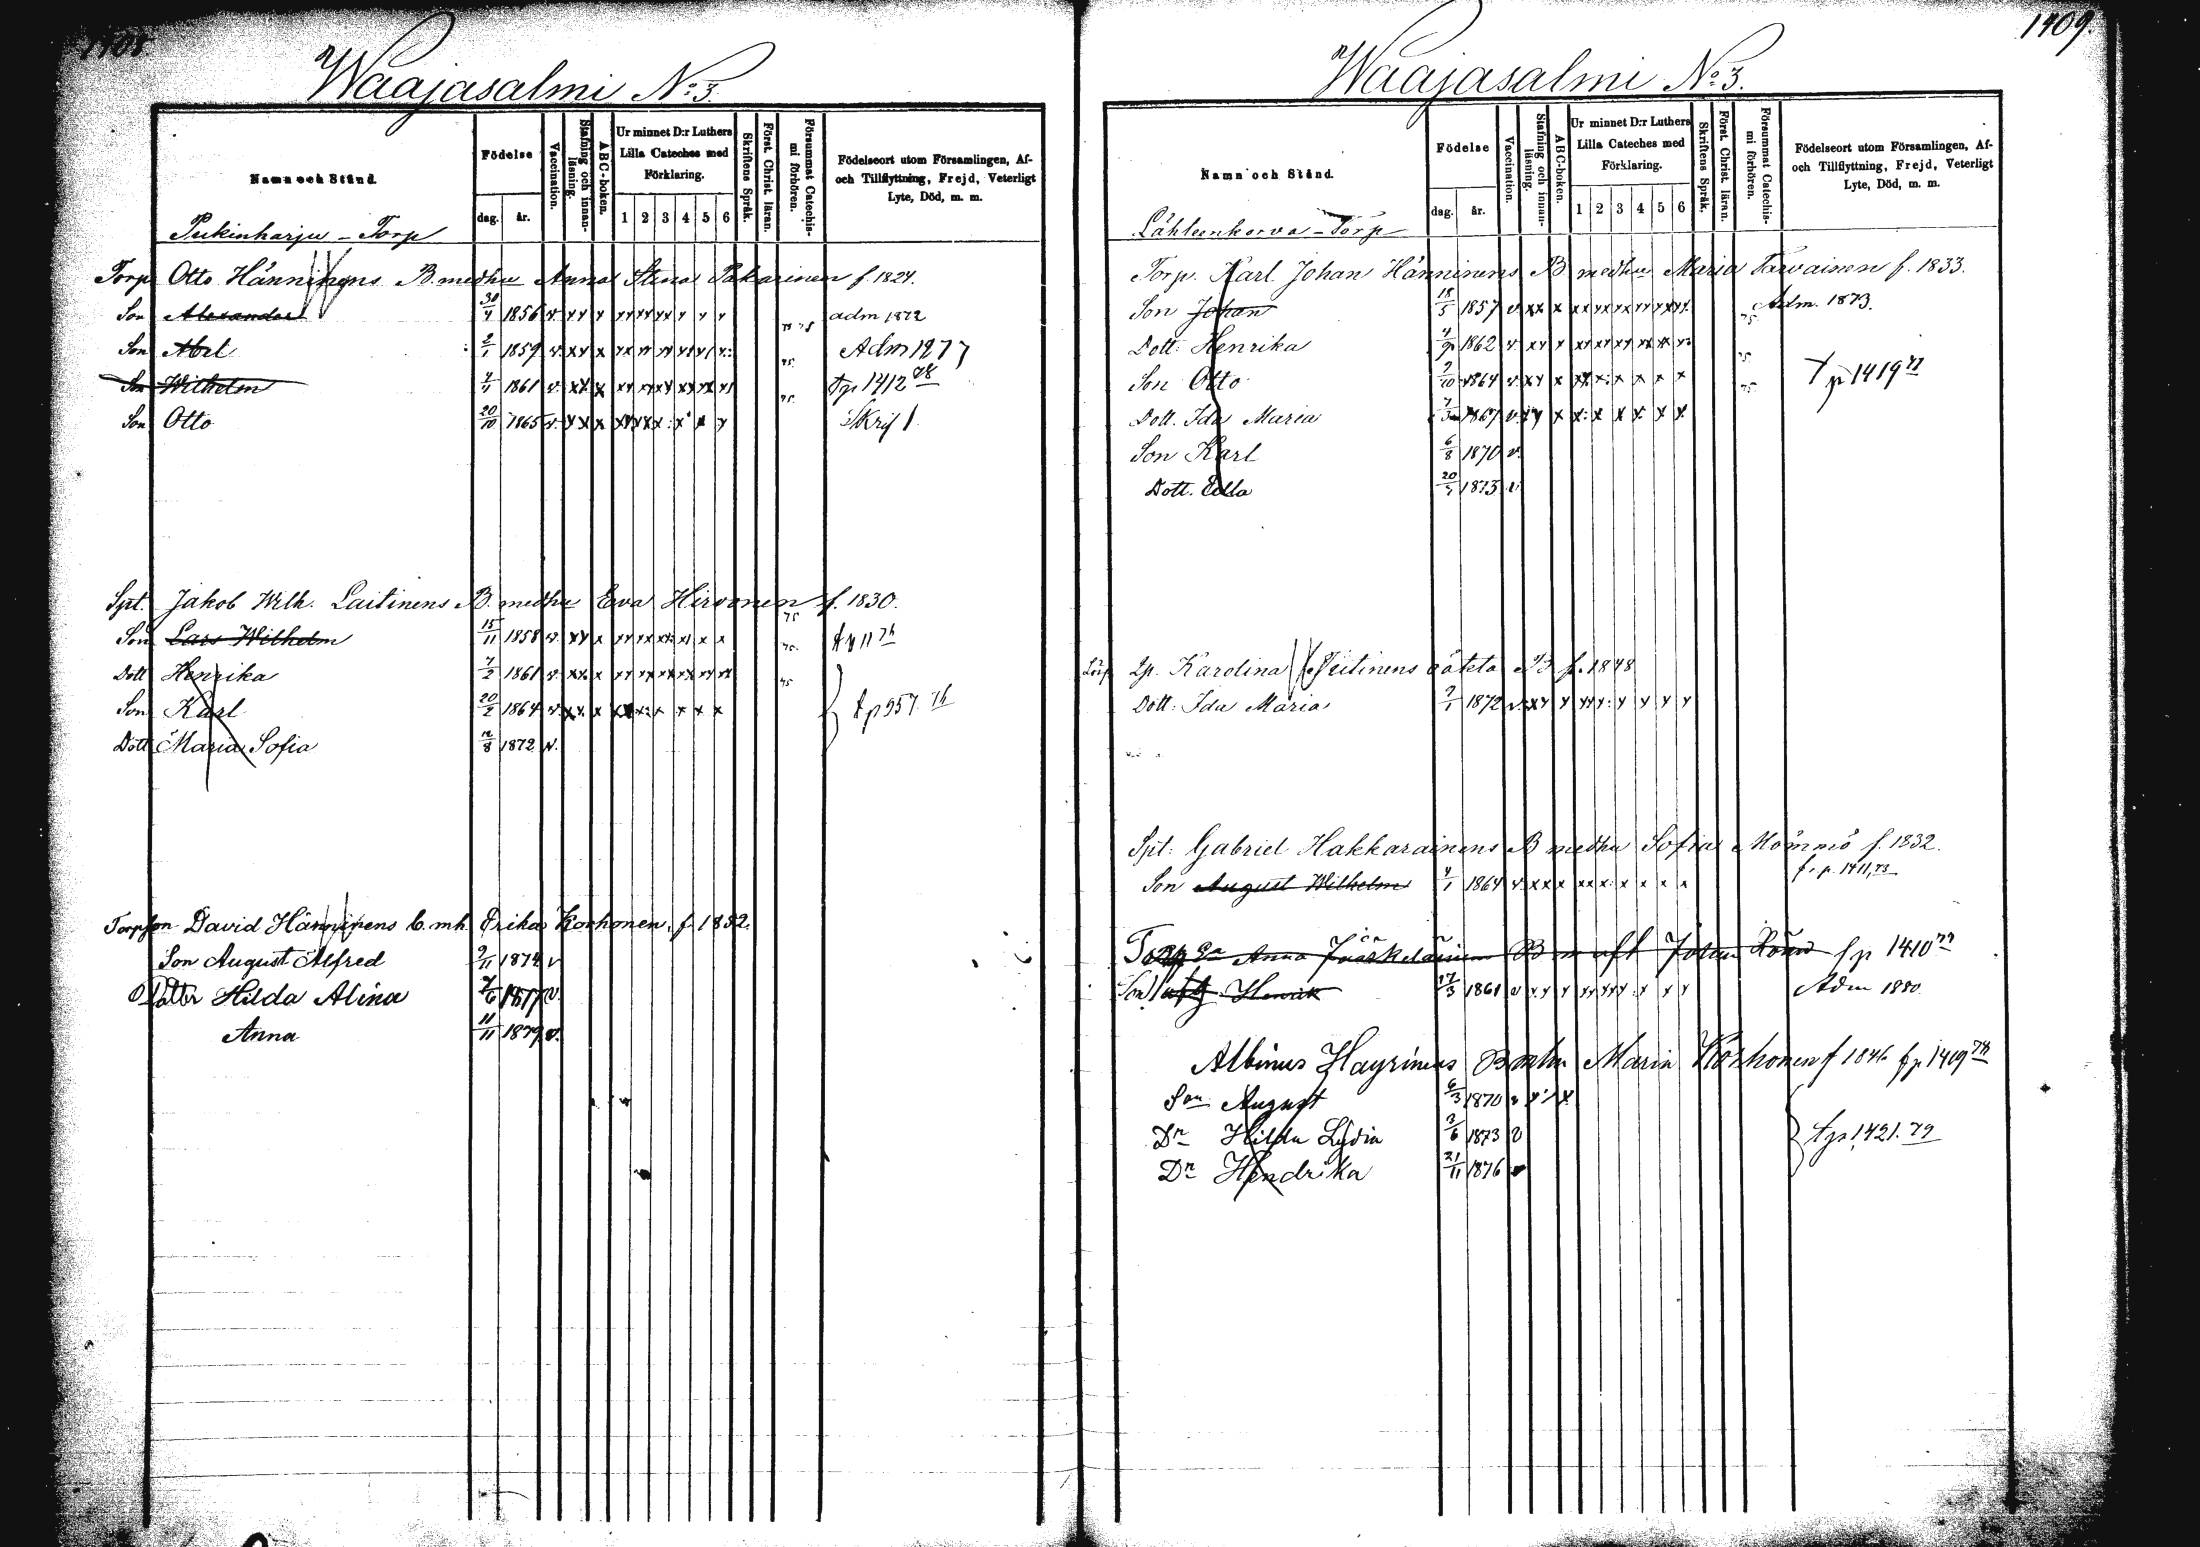 1408
Waajasalmi No 3.
Namn och Stånd.
Födelse
dag.
år.
Vaccination.
Stafning och innanläsning.
ABC-boken.
Ur minnet D:r Luthers Lilla Cateches med Förklaring.
1 2 3 4 5 6
Skriftens Språk.
Först. Christ. läran.
Försummat Catechismi förhören.
Födelseort utom Församlingen, Af-
och Tillflyttning, Frejd, Veterligt
Lyte, Död, m. m.
Pukinharju - Torp
Torp. Otto Hänninens B. medhu Anna Stina Pakarinen f. 1824.
Son Alexander 30/4 1856 v. adm 1872
Son Abel 2/1 1859 v. Adm 1877
Son Wilhelm 1861 v. tp 1412 78
Son Otto 20/10 1865 v.
Spt. Jakob Wilh. Laitinens B. medhu Eva Hirvonen f. 1830.
Son Lars Wilhelm 15/11 1858 v.
Dott Henrika 7/2 1861 v.
Son Karl 20/2 1864 v. tp 957 76
Dott Maria Sofia 1872 v.
Torpson David Hänninens b. mh. Erika Korhonen f. 1852.
Son August Alfred 9/11 1874 v
Dotter Hilda Alina 1877 v.
Anna 11/11 1879 v.
1409.
Waajasalmi No 3.
Namn och Stånd.
Födelse
dag.
år.
Vaccination.
Stafning och innanläsning.
ABC-boken.
Ur minnet D:r Luthers Lilla Cateches med Förklaring.
1 2 3 4 5 6
Skriftens Språk.
Först. Christ. läran.
Försummat Catechismi förhören.
Födelseort utom Församlingen, Af-
och Tillflyttning, Frejd, Veterligt
Lyte, Död, m. m.
Lähteenkorva - Torp
Torp. Karl Johan Hänninens B medhu Maria Tarvainen f. 1833.
Son Johan 18/5 1857 v. Adm. 1873.
Dott: Henrika 1862 v.
Son Otto 1864 v. tp 1419 77
Dott. Ida Maria 1867 v.
Son Karl 6/8 1870 v.
Dott. Edla 1873 v.
Ip. Karolina Teitinens oäkta B f. 1848
Dott: Ida Maria 1872 v.
Spt: Gabriel Hakkarainens B medhu Sofia Mömmö f. 1832.
f. p. 1411, 73
Son August Wilhelm 4/1 1864 v.
Anna Jääskeläinen B m aft Johan f p 1410
Son Henrik 17/3 1861 v Adm 1880
Albinus Hayrinens B mhu Maria Korhonen f 1846 fp 1409 78
Son August 6/3 1870 v
Dr Hilda Lydia 3/6 1873 v tp 1421. 79
Dr Hendrika 21/11 1876 v